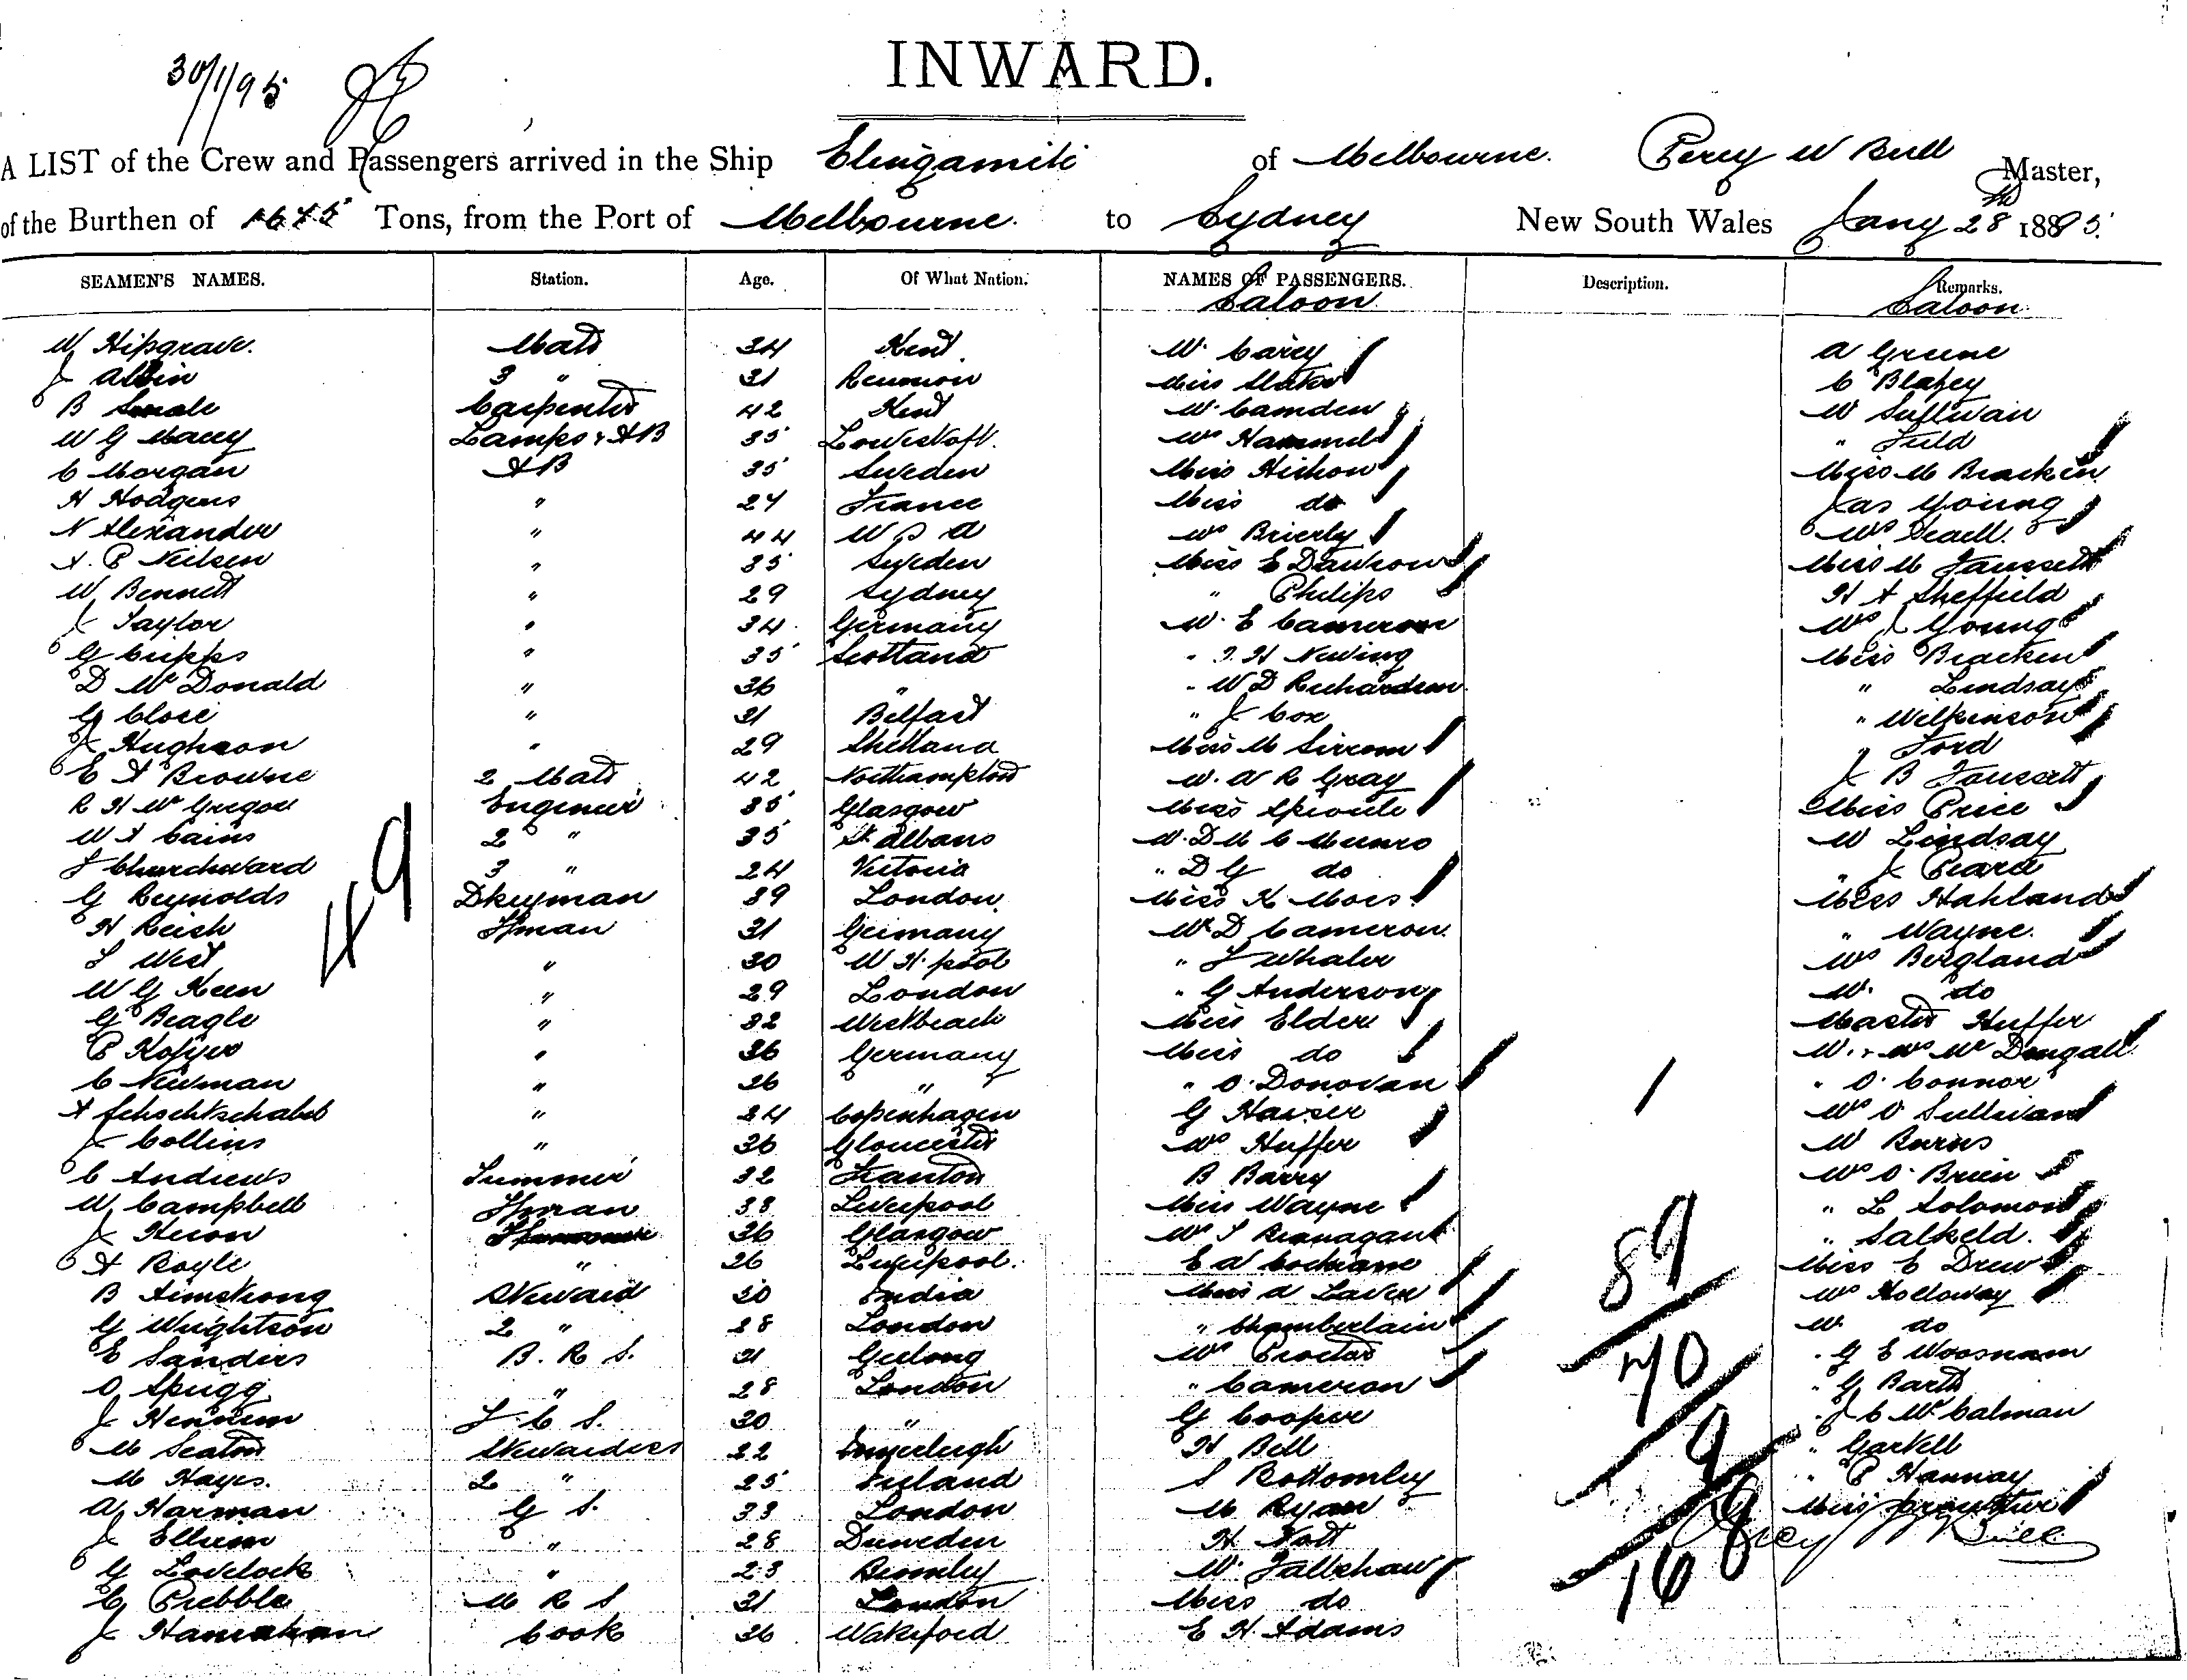 30/1/95
INWARD.
A LIST of the Crew and Passengers arrived in the Ship Elingamite of Melbourne. Percy W Bull Master,
of the Burthen of 1675 Tons, from the Port of Melbourne. to Sydney New South Wales Jany 28th 1895.
SEAMEN'S NAMES. Station. Age. Of What Nation. NAMES OF PASSENGERS. Description. Remarks.
Saloon. Saloon
W Hipgrave. Mate 34 Kent W. Carey A Greene
J Albin 3 " 31 Reunion Miss Slater C Blakey
B Smale Carpenter 42 Kent W. Camden W Sullivan
W G Macey Lamps & AB 35 Lowestoft. Mrs Hammond " Field
C Morgan AB 35 Sweden Miss Hishon Miss M Bracken
H Hodgens " 24 France Miss do Jas Young
N Alexander " 44 U S A Mrs Brierly Mrs Seall.
A. P Neilsen " 35 Sweden Miss E Dawson Miss M Faussett
W Bennett " 29 Sydney " Philips H A Sheffield
J Taylor " 34 Germany Mr E Cameron Mrs J Young
G Cripps " 35 Scotland " T. H Newing Miss Bracken
D McDonald " 36 " " W D Richardson " Lindsay
G Close " 31 Belfast " J Cox " Wilkinson
J Hughson " 29 Shetland Miss M Sircom " Ford
E A Browne 2 Mate 42 Northampton Mr W R Gray J B Faussett
R H McGregor Engineer 35 Glasgow Miss Sproule Miss Price
W A Cains 2 " 35 St Albans Mr D M C Munro W Lindsay
J Churchward 3 " 24 Victoria " D G do " J Peard
G Reynolds Dkeyman 39 London Miss K Moes Miss Hahland
H Reish Fman 31 Germany Mr D Cameron. " Wayne.
J West " 30 W H pool " J Whaler Mrs Bergland
W G Keen " 29 London " G Anderson Mr do
G Beagle " 32 Westbeach Miss Elder Master Huffer
P " 36 Germany Miss do Mr & Mrs McDougall
C Newman " 26 " " O'Donovan 1 " O'Connor
A " 24 Copenhagen G Hauser Mrs O Sullivan
J Collins " 36 Gloucester Mrs Huffer W Burns
C Andrews 32 B Barry Mrs O'Brien
W Campbell Fman 38 Liverpool Miss Wayne " L Solomon
J Heron 36 Glasgow Mrs " Salkeld.
A Boyle " 26 Liverpool. E A Cochrane Miss E Drew
B Armstrong Steward 30 India Miss A Laver Mrs Holloway
G Wrightson 2 " 28 London " Chamberlain Mr do
E Sanders B. R S. 21 Geelong Mrs Proctor " G E Woosnam
O Spugg " 28 London " Cameron " G Barth
J F. C S. 30 " G Cooper " J C McCalman
M Seaton Stewardess 22 H Bell " Gaskell
M Hayes. 2 " 25 Ireland S Bottomley " P Hannay
A Harman G S. 33 London M Ryan Miss
J Ellum " 28 Dunedin H Nott Percy W Bull
G Lovelock " 23 Bromley W. Fallshaw
C Prebble M R S 21 London Miss do
J Hanrahan Cook 36 Wakeford E H Adams
49
89
70
9
9
16